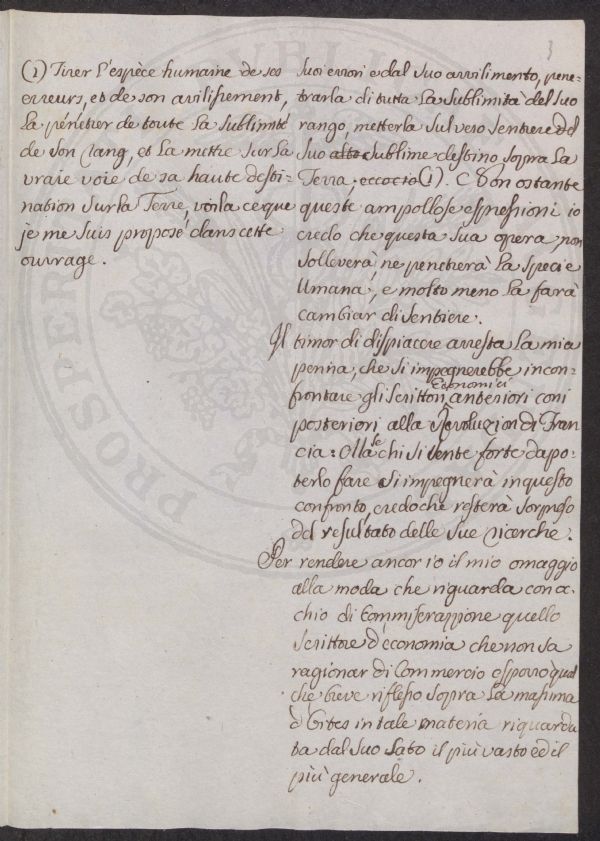 3
(1) Tirer l'espèce humaine de ses
erreurs, et de son avilissement,
la pénétrer de toute la sublimité
de son rang, et la mettre sur la
vraie voie de sa haute desti=
nation sur la Terre, voilà ce que
je me suis proposé dans cette
ouvrage.
suoi errori e dal suo avvilimento, pene=
trarla di tutta la sublimità del suo
rango, metterla sul vero sentiere del
suo alto sublime destino sopra la
Terra, eccocio (1). E Non ostante
queste ampollose espressioni io
credo che questa sua opera non
solleverà, ne penetrerà la specie
Umana, e molto meno la farà
cambiar di sentiere.
Il timor di dispiacere arresta la mia
penna, che si impegnerebbe in con=
frontare gli scrittori Economici anteriori coni
posteriori alla Revoluzion di Fran
cia: Ma se chi si sente forte da po=
terlo fare si impegnerà in questo
confronto, credo che resterà sorpreso
del resultato delle sue ricerche.
Per rendere ancor io il mio omaggio
alla moda che riguarda con oc=
chio di Commiserazzione quello
scrittore d'economia che non sa
ragionar di Commercio esporrò qual
che breve riflesso sopra la massima
d'Gites in tale materia riguarda
ta dal suo lato il più vasto ed il
più generale.
PROSPER